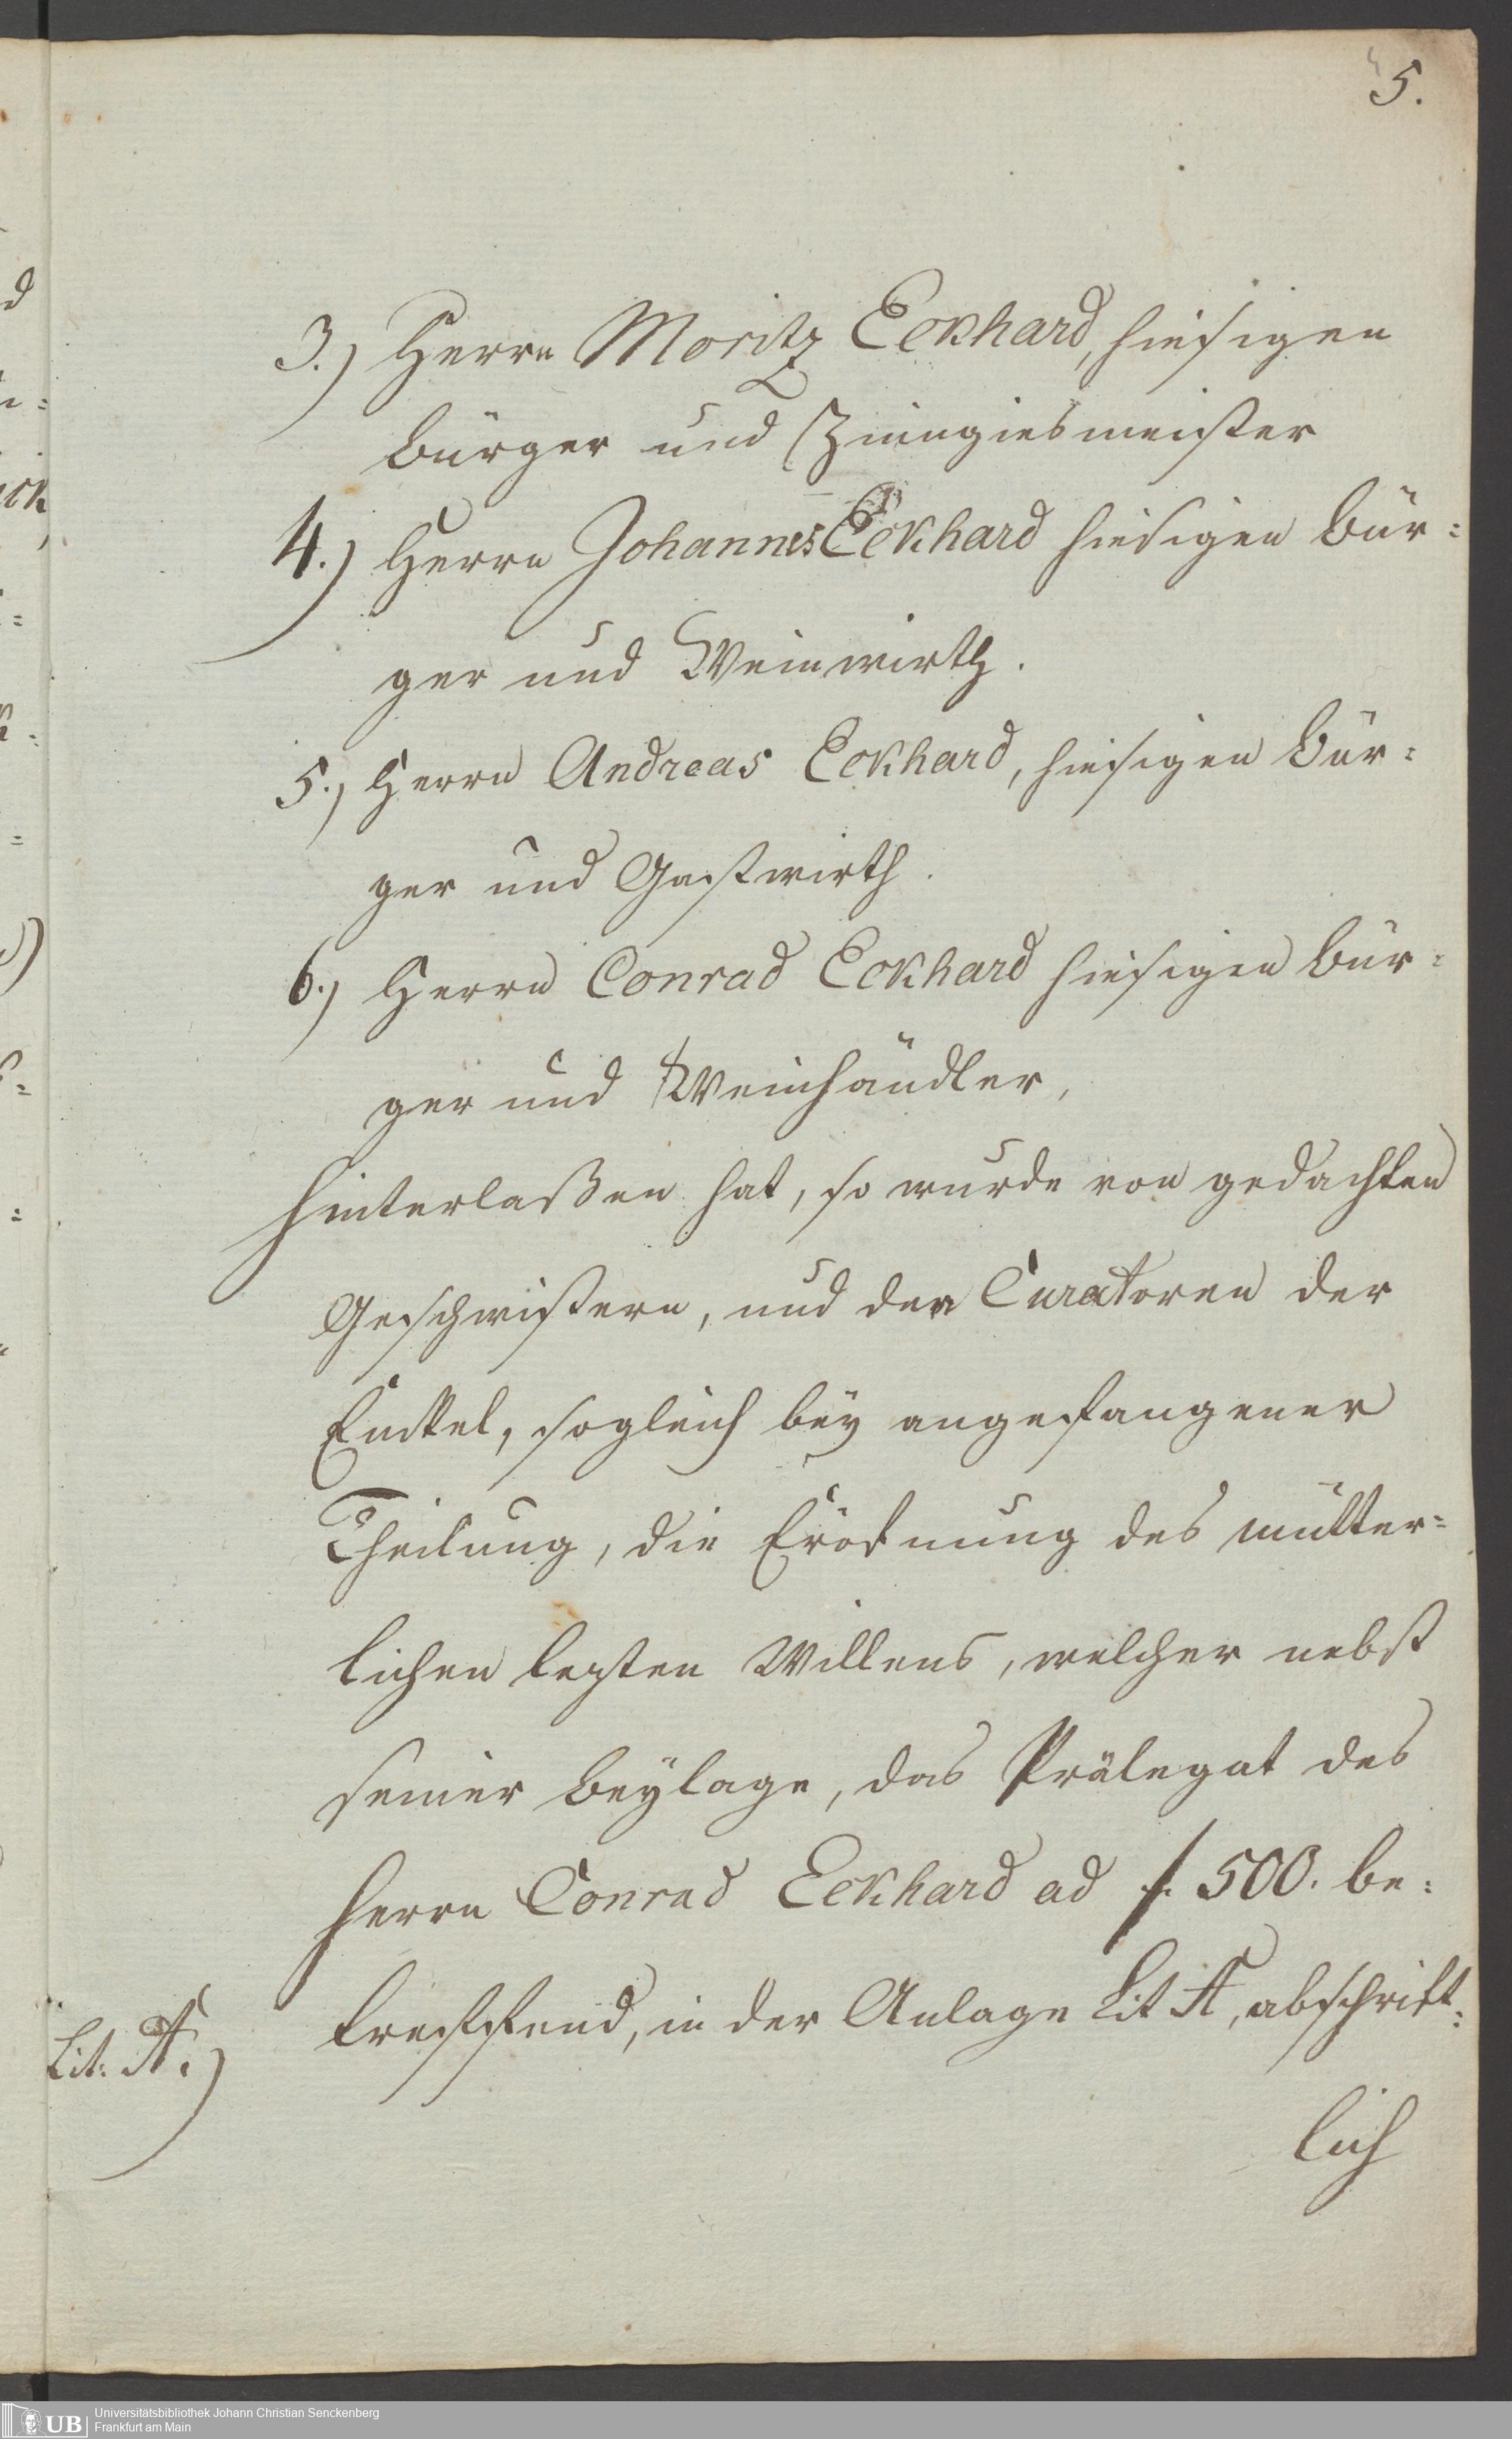 5.
3.) Herrn Moritz Eckhard, hiesigen
Bürger und Zinngiesmeister
4.) Herrn Johannes Eckhard hiesigen Bür=
ger und Weinwirth.
5.) Herrn Andreas Eckhard, hiesigen Bür=
ger und Gastwirth.
6.) Herrn Conrad Eckhard hiesigen Bür=
ger und Weinhändler,
hinterlaßen hat, so wurde von gedachten
Geschwistern, und den Curatoren der
Enckel, sogleich bey angefangener
Theilung, die Eröfnung des mütter=
lichen lezten Willens, welcher nebst
seiner Beylage, das Prälegat des
Herrn Conrad Eckhard ad f. 500. be=
treffend, in der Anlage Lit A, abschrift=
Lit: A.)
lich
UB
Universitätsbibliothek Johann Christian Senckenberg
Frankfurt am Main